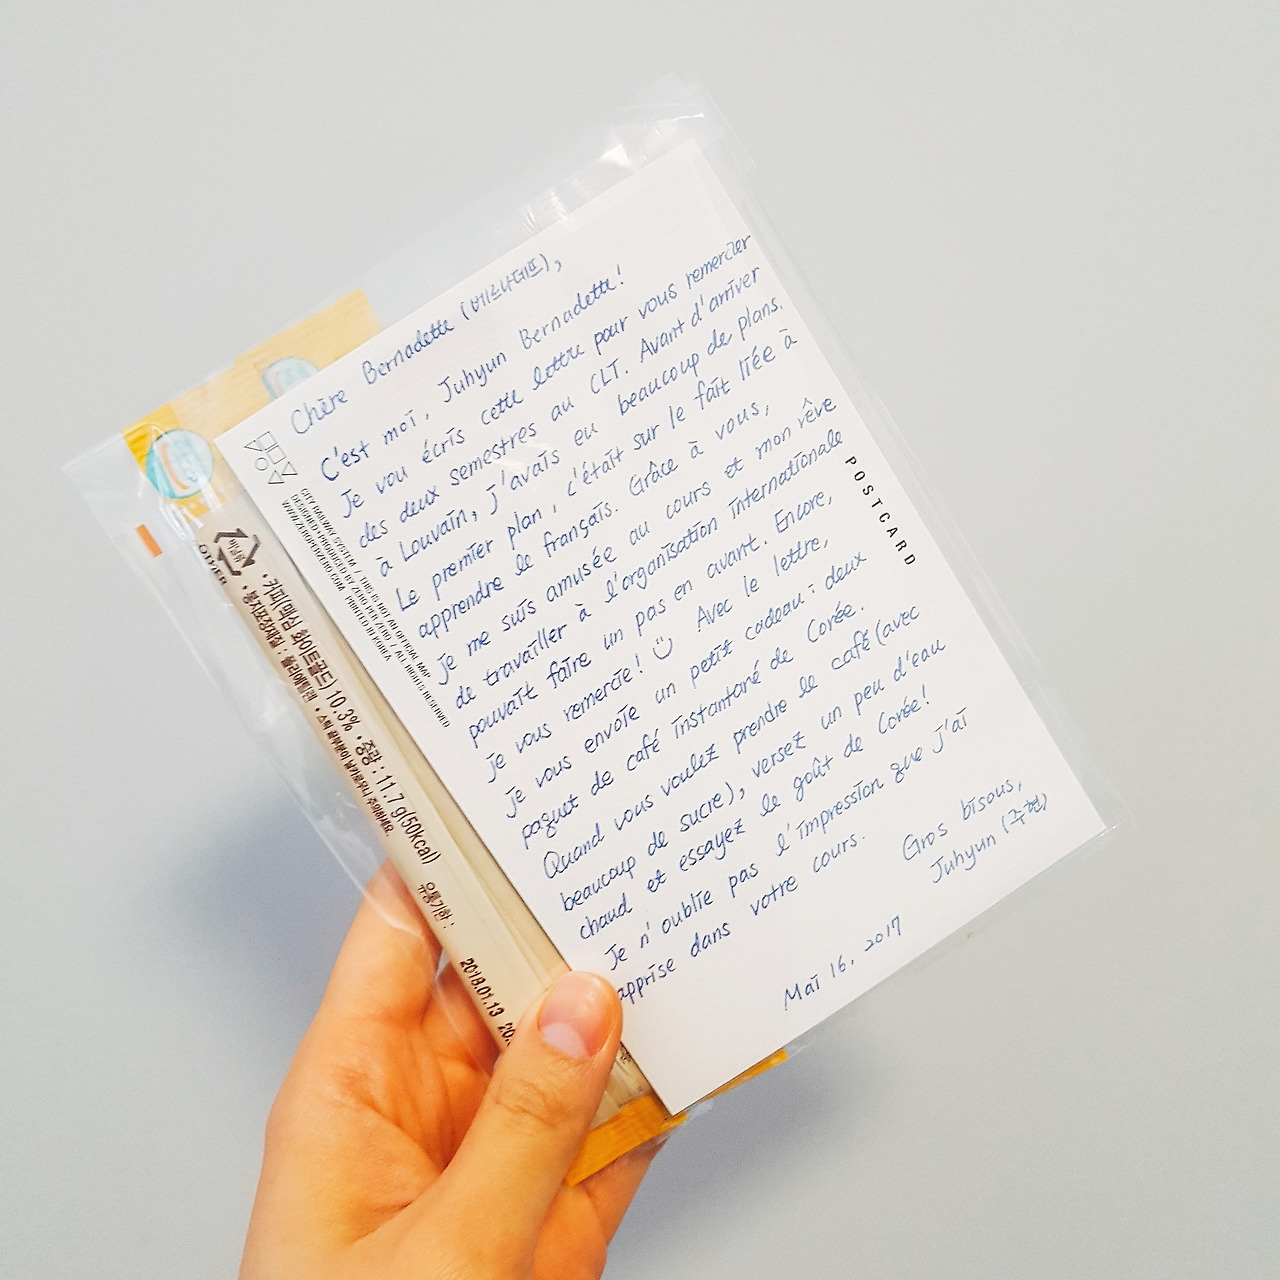 Chère Bernadette (베르나데뜨),
C'est moi, Juhyun Bernadette!
Je vou écris cette lettre pour vous remercier
des deux semestres au CLT. Avant d'arriver
à Louvain, j'avais eu beaucoup de plans.
Le premier plan, c'était sur le fait liée à
apprendre le français. Grâce à vous,
je me suis amusée au cours et mon rêve
de travailler à l'organisation internationale
pouvait faire un pas en avant. Encore,
je vous remercie! Avec le lettre,
je vous envoie un petit cadeau : deux
paquet de café instantané de Corée.
Quand vous voulez prendre le café (avec
beaucoup de sucre), versez un peu d'eau
chaud et essayez le goût de Corée!
Je n'oublie pas l'impression que j'ai
apprise dans votre cours.
Gros bisous,
Juhyun (주현)
Mai 16. 2017
POSTCARD
CITY RAILWAY SYSTEM / THIS IS NOT AN OFFICIAL MAP
DESIGNED+PRODUCED BY ZERO PER ZERO / ALL RIGHTS RESERVED
WWW.ZEROPERZERO.COM PRINTED IN KOREA
비닐류
OTHER
• 커피(맥심 화이트골드) 10.3% • 중량 : 11.7 g(50kcal)
• 복지포장재질 : 폴리에틸렌 • 스틱 끝부분이 날카로우니 주의하세요.
유통기한 :
2018.01.13